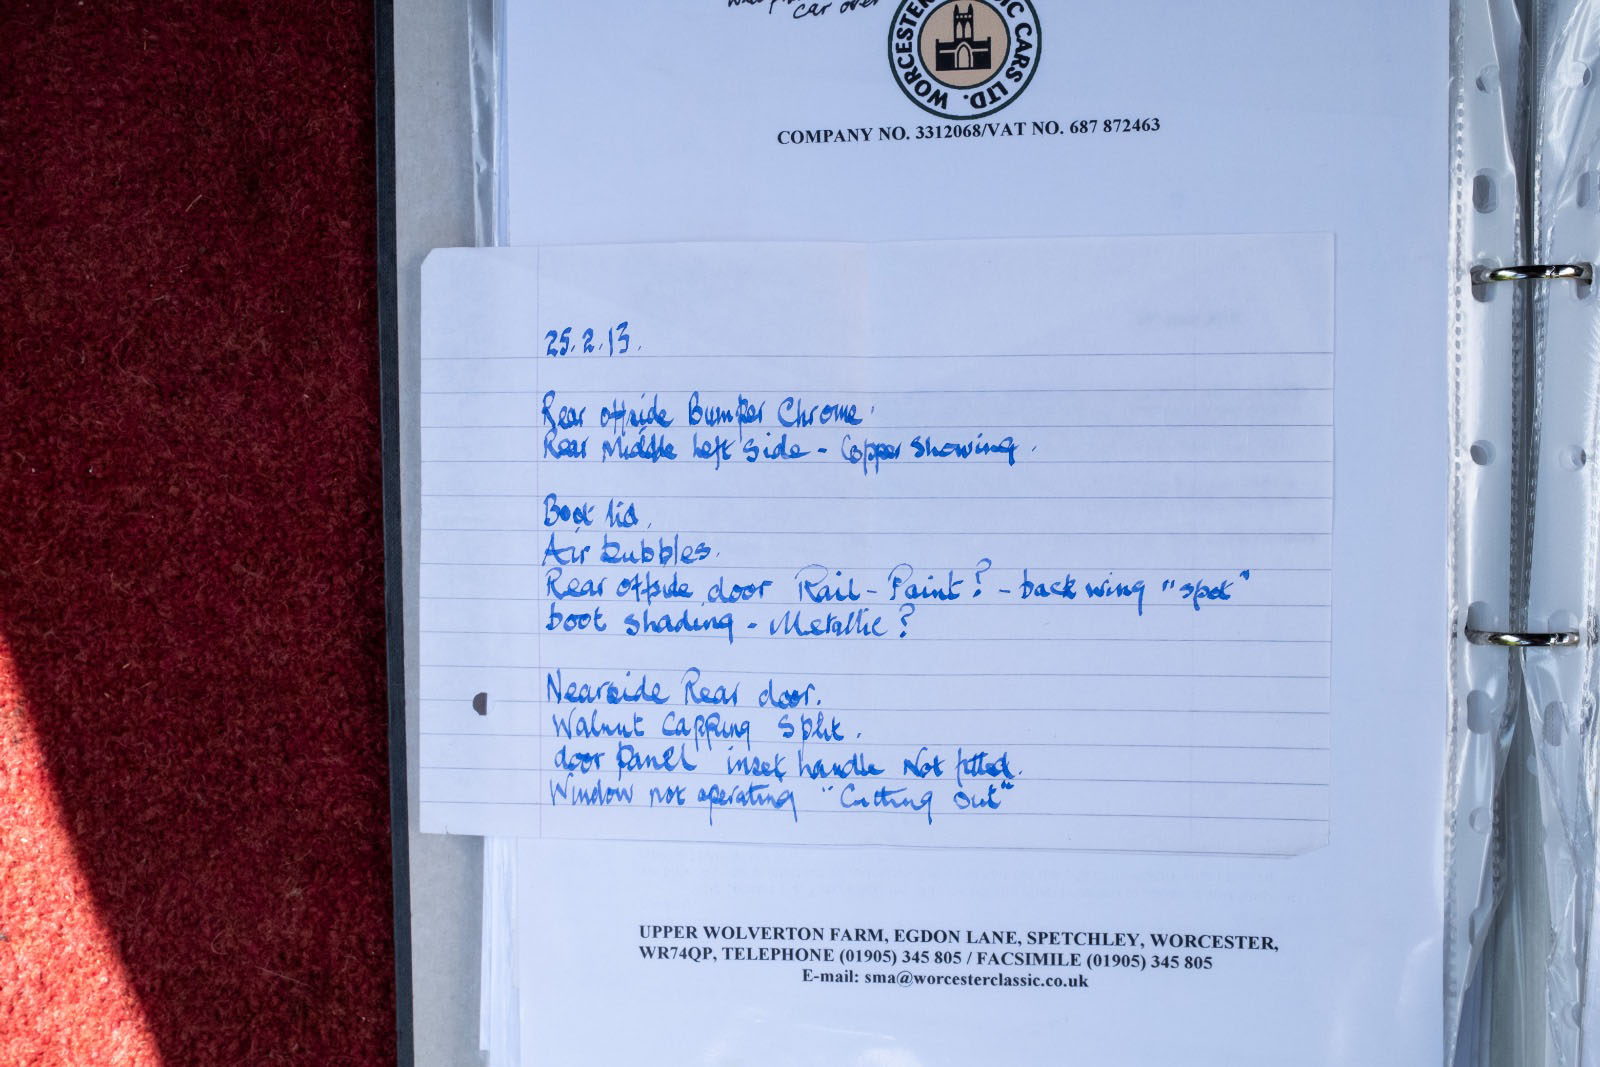 car over
WORCESTER CLASSIC CARS LTD.
COMPANY NO. 3312068/VAT NO. 687 872463
25.2.13.
Rear offside Bumper Chrome.
Rear Middle Left Side - Copper showing.
Boot lid.
Air bubbles.
Rear offside door Rail - Paint? - back wing "spot"
boot shading - Metallic?
Nearside Rear door.
Walnut Capping Split.
door panel inset handle Not fitted.
Window not operating "Cutting out"
UPPER WOLVERTON FARM, EGDON LANE, SPETCHLEY, WORCESTER,
WR74QP, TELEPHONE (01905) 345 805 / FACSIMILE (01905) 345 805
E-mail: sma@worcesterclassic.co.uk